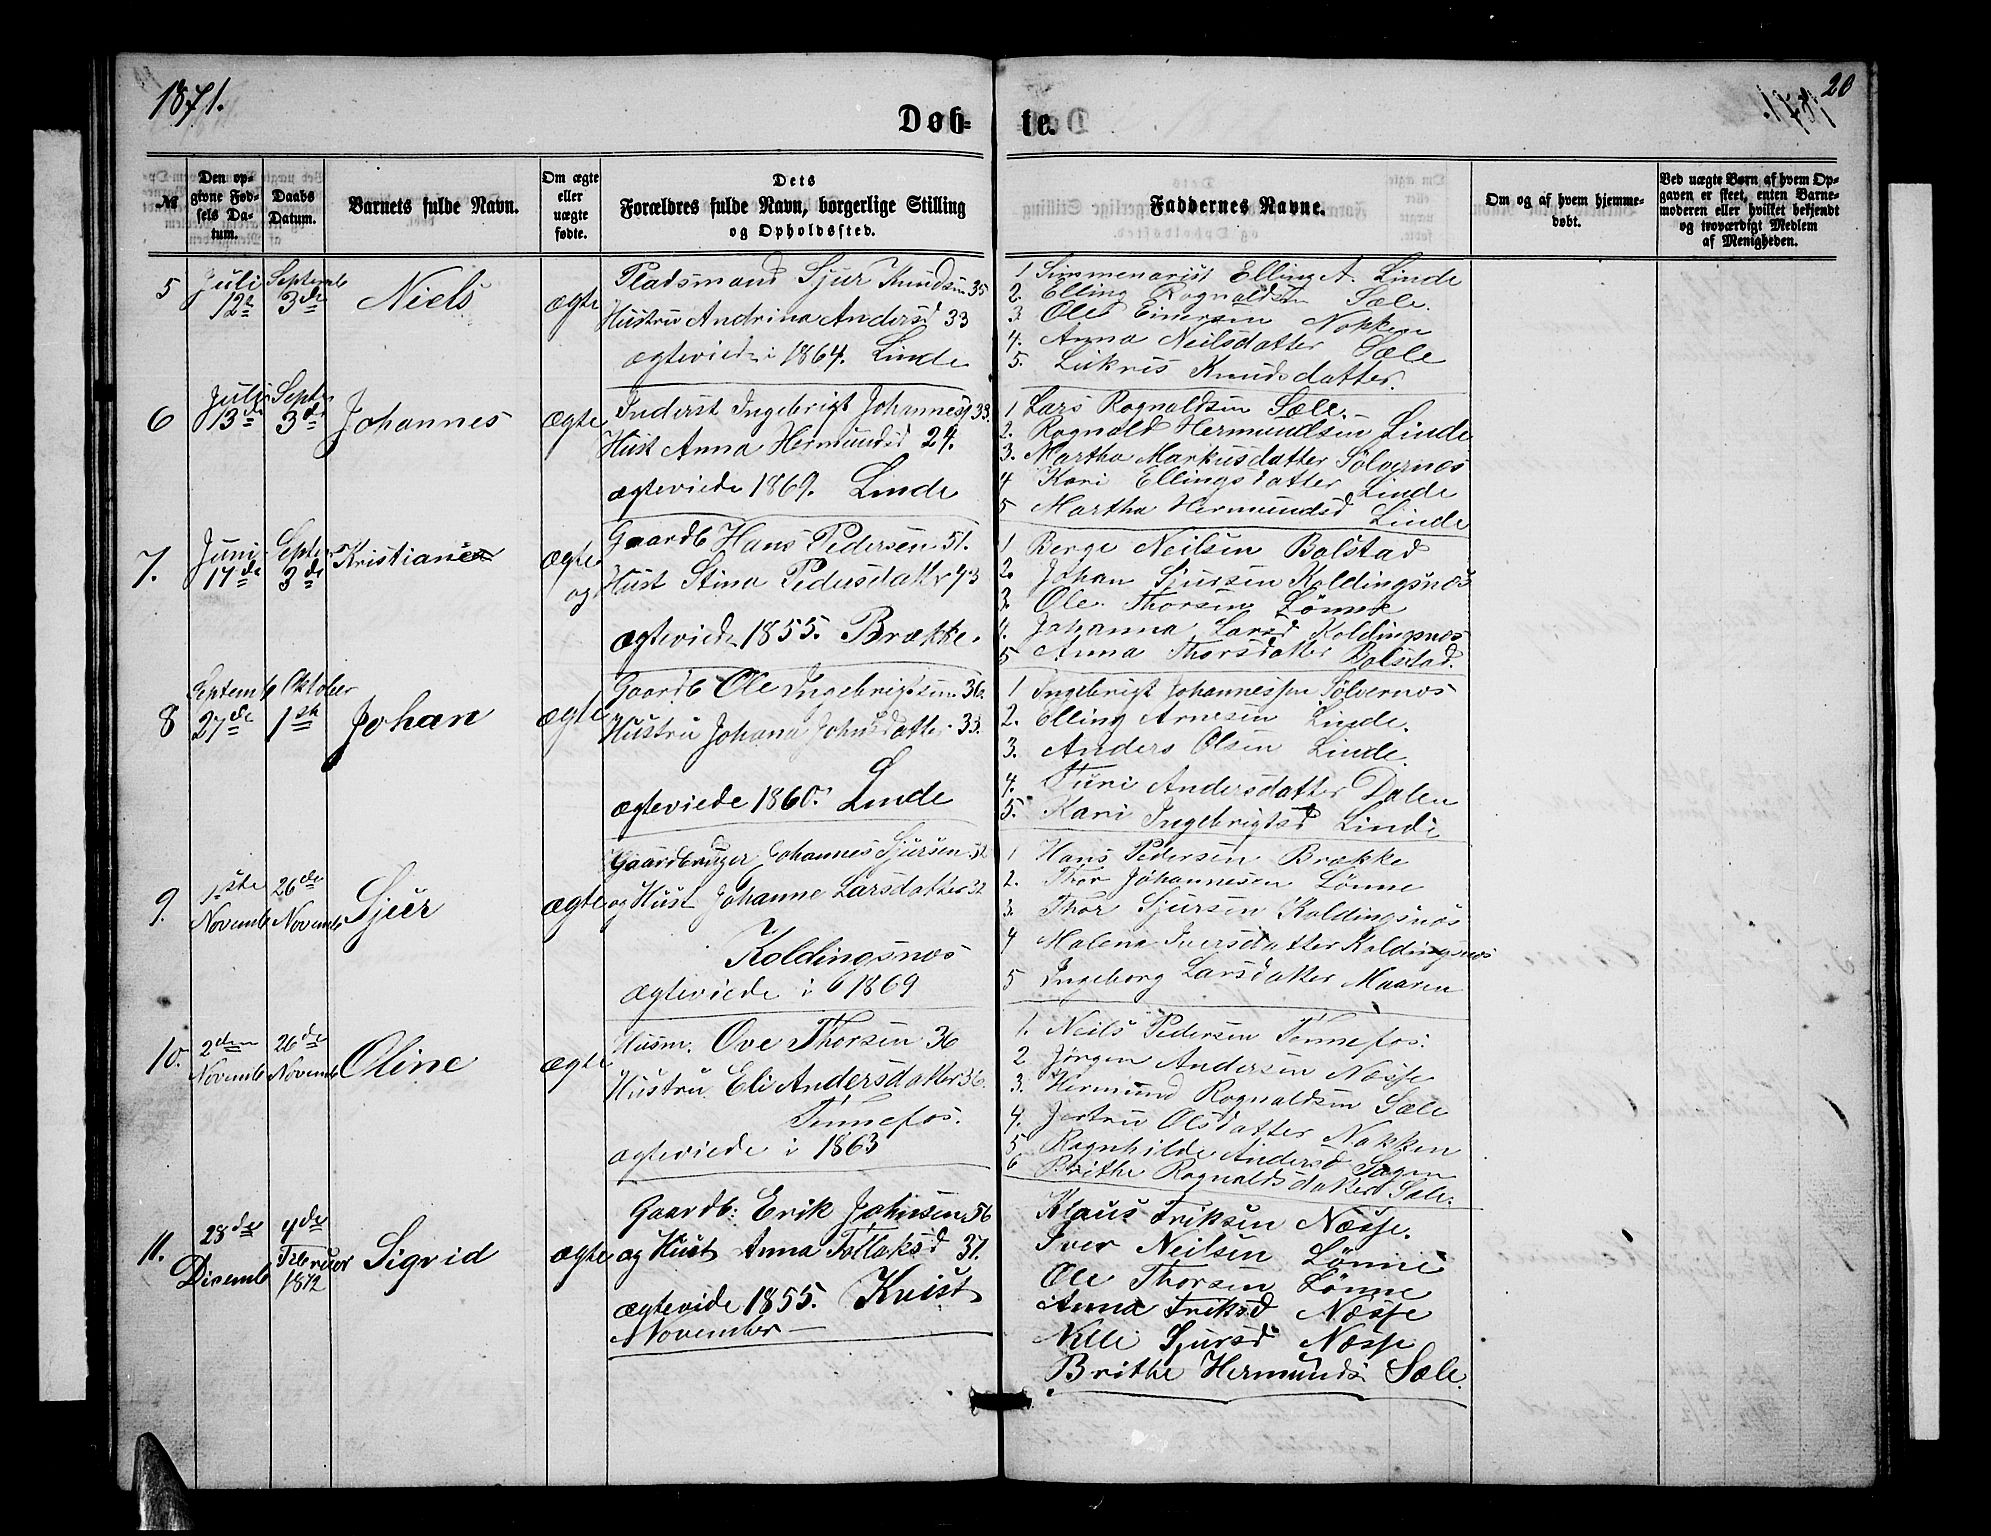 1871.
20
Døb-
te.
№
Den op-
givne Fød-
sels Da-
tum.
Daabs
Datum.
Barnets fulde Navn.
Om ægte
eller
uægte
fødte.
Dets
Forældres fulde Navn, borgerlige Stilling
og Opholdssted.
Faddernes Navne.
Om og af hvem hjemme-
døbt.
Ved uægte Børn af hvem Op-
gaven er skeet, enten Barne-
moderen eller hvilket bekjendt
og troværdigt Medlem
af Menigheden.
5
Juli
12te
Septemb
3de
Niels
ægte
Pladsmand Sjur Knudsen 35
Hustru Andrina Andersd 33
ægteviede i 1864. Linde
1 Elling A. Linde
2. Elling Rognaldsen Sæle.
3. Ole Einersen Nokken
4. Anna Neilsdatter Sæle
5. Knudsdatter.
6
Juli
13de
Septr
3de
Johannes
ægte
Inderst Ingebrigt Johannes 33.
Hust Anna Hermundsd 29.
ægteviede 1869. Linde
1 Lars Rognaldsen Sæle.
2. Rognald Hermundsen Linde
3. Martha Markusdatter Sølvernæs
4 Kari Ellingsdatter Linde
5 Martha Hermundsd Linde
7.
Juni
17de
Septr
3de
Kristiane
ægte
og
Gaardb Hans Pedersen 51.
Hust Stina Pedersdatter 43
ægteviede 1855. Brække.
1 Berge Neilsen Bolstad
2. Johan Sjursen Koldingsnæs
3. Ole Thorsen Lønne
4. Johanna Larsd Koldingsnæs
5 Anna Thorsdatter Bolstad.
8
Septemb
27de
Oktober
1st
Johan
ægte
Gaardb Ole Ingebrigtsen 36.
Hustru Johana Johnsdatter 33.
ægteviede 1860. Linde
1 Ingebrigt Johannessen Sølvernæs
2. Elling Arnesen Linde.
3. Anders Olsen Linde.
4. Turi Andersdatter Dalen
5. Kari Ingebrigtsd Linde
9.
1ste
Novemb
26de
Novemb
Sjur
ægte
Gaardbruger Johannes Sjursen 32
og Hust Johanne Larsdatter 32
Koldingsnæs
ægteviede i 1869
1 Hans Pedersen Brække
2. Thor Johannesen Lønne
3. Thor Sjursen Koldingsnæs
4 Malena Iversdatter Koldingsnæs
5 Ingeborg Larsdatter Maaren
10.
2den
Novemb
26de
Novemb
Oline
ægte
Husm. Ove Thorsen 36
Hustru Eli Andersdatter 36.
Tennefos.
ægteviede i 1863
1. Neils Pedersen Tennefos.
2 Jørgen Andersen Næsse
3. Hermund Rognaldsen Sæle
4. Jertru Olsdatter Nokken
5 Ragnhilde Andersd
6 Brithe Rognaldsdatter Sæle.
11.
28de
Decemb
4de
Februar
1872
Sigvid
ægte
Gaardb: Erik Johnsen 56
og Hust Anna Follaksd 37.
ægtevide 1855. Kvist
November
Klaus Eriksen Næsse.
Iver Neilsen Lønne
Ole Thorsen Lønne
Anna Eriksd Næsse
Nelli Sjursd Næsse
Brithe Hermunds Sæle.